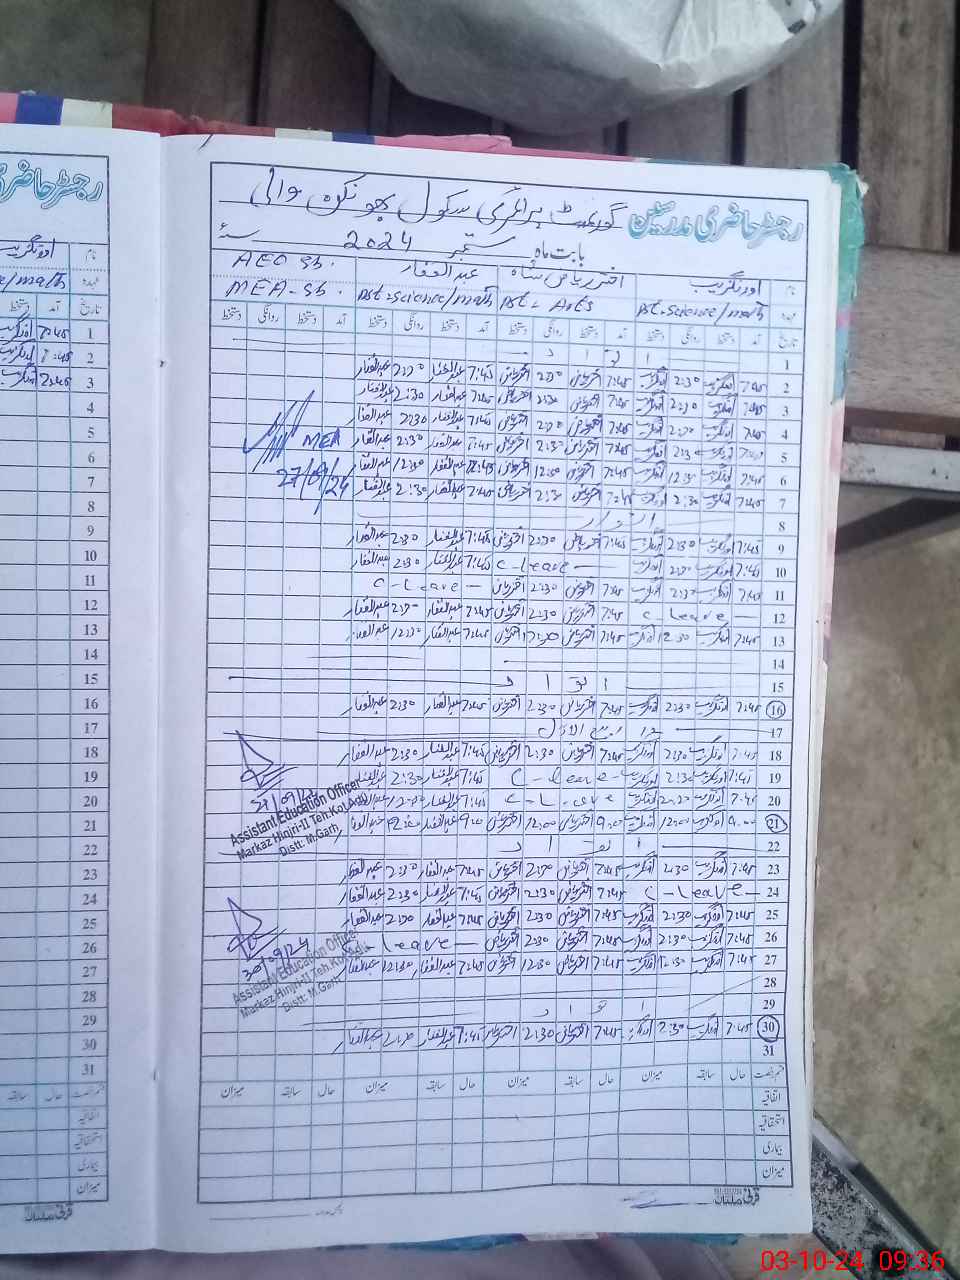 رجسٹر حاضری مدرسین گورنمنٹ پرائمری سکول بھونکہ والی
بابت ماہ ستمبر 2024 سنہ
نام اورنگزیب اختر ریاض شاہ عبدالغفار AEO Sb.
عہدہ Pst. Science/math Pst = Arts Pst = Science/math MEA-Sb.
تاریخ آمد دستخط روانگی دستخط آمد دستخط روانگی دستخط آمد دستخط روانگی دستخط آمد دستخط روانگی دستخط
1 اتوار
2 7:45 اورنگزیب 2:30 اورنگزیب 7:45 اختر ریاض 2:30 اختر ریاض 7:45 عبدالغفار 2:30 عبدالغفار
3 7:45 اورنگزیب 2:30 اورنگزیب 7:45 اختر ریاض 2:30 اختر ریاض 7:45 عبدالغفار 2:30 عبدالغفار
4 7:45 اورنگزیب 2:30 اورنگزیب 7:45 اختر ریاض 2:30 اختر ریاض 7:45 عبدالغفار 2:30 عبدالغفار
5 7:45 اورنگزیب 2:30 اورنگزیب 7:45 اختر ریاض 2:30 اختر ریاض 7:45 عبدالغفار 2:30 عبدالغفار
MEA
6 7:45 اورنگزیب 12:30 اورنگزیب 7:45 اختر ریاض 12:30 اختر ریاض 7:45 عبدالغفار 12:30 عبدالغفار
7 7:45 اورنگزیب 2:30 اورنگزیب 7:45 اختر ریاض 2:30 اختر ریاض 7:45 عبدالغفار 2:30 عبدالغفار
27/09/24
8 اتوار
9 7:45 اورنگزیب 2:30 اورنگزیب 7:45 اختر ریاض 2:30 اختر ریاض 7:45 عبدالغفار 2:30 عبدالغفار
10 7:45 اورنگزیب 2:30 اورنگزیب C-Leave 7:45 عبدالغفار 2:30 عبدالغفار
11 7:45 اورنگزیب 2:30 اورنگزیب 7:45 اختر ریاض 2:30 اختر ریاض C-Leave
12 C-Leave 7:45 اختر ریاض 2:30 اختر ریاض 7:45 عبدالغفار 2:30 عبدالغفار
13 7:45 اورنگزیب 12:30 اورنگزیب 7:45 اختر ریاض 12:30 اختر ریاض 7:45 عبدالغفار 12:30 عبدالغفار
14
15 اتوار
16 7:45 اورنگزیب 2:30 اورنگزیب 7:45 اختر ریاض 2:30 اختر ریاض 7:45 عبدالغفار 2:30 عبدالغفار
17 ربیع الاول
18 7:45 اورنگزیب 2:30 اورنگزیب 7:45 اختر ریاض 2:30 اختر ریاض 7:45 عبدالغفار 2:30 عبدالغفار
19 7:45 اورنگزیب 2:30 اورنگزیب C-Leave 7:45 عبدالغفار 2:30 عبدالغفار
20 7:45 اورنگزیب اورنگزیب C-Leave 7:45 عبدالغفار عبدالغفار
21 9:00 اورنگزیب 12:00 اورنگزیب 9:00 اختر ریاض 12:00 اختر ریاض 9:00 عبدالغفار 12:00 عبدالغفار
Assistant Education Officer
Markaz Hinjri-II Teh:Kot Adu
Distt: M.Garh
22 اتوار
23 7:45 اورنگزیب 2:30 اورنگزیب 7:45 اختر ریاض 2:30 اختر ریاض 7:45 عبدالغفار 2:30 عبدالغفار
24 C-Leave 7:45 اختر ریاض 2:30 اختر ریاض 7:45 عبدالغفار 2:30 عبدالغفار
25 7:45 اورنگزیب 2:30 اورنگزیب 7:45 اختر ریاض 2:30 اختر ریاض 7:45 عبدالغفار 2:30 عبدالغفار
26 7:45 اورنگزیب 2:30 اورنگزیب 7:45 اختر ریاض 2:30 اختر ریاض Leave
27 7:45 اورنگزیب 12:30 اورنگزیب 7:45 اختر ریاض 12:30 اختر ریاض 7:45 عبدالغفار 12:30 عبدالغفار
30/09/24
Assistant Education Officer
Markaz Hinjri-II Teh:Kot Adu
Distt: M.Garh
28
29 اتوار
30 7:45 اورنگزیب 2:30 اورنگزیب 7:45 اختر ریاض 2:30 اختر ریاض 7:45 عبدالغفار عبدالغفار
31
قسم رخصت حال سابقہ میزان حال سابقہ میزان حال سابقہ میزان حال سابقہ میزان
اتفاقیہ
استحقاقیہ
بیماری
میزان
رجسٹر حاضری
نام اورنگزیب
عہدہ e/math
تاریخ آمد دستخط
1 7:45 اورنگزیب
2 7:45 اورنگزیب
3 7:45 اورنگزیب
4
5
6
7
8
9
10
11
12
13
14
15
16
17
18
19
20
21
22
23
24
25
26
27
28
29
30
31
قسم رخصت حال سابقہ
اتفاقیہ
استحقاقیہ
بیماری
میزان
03-10-24 09:36